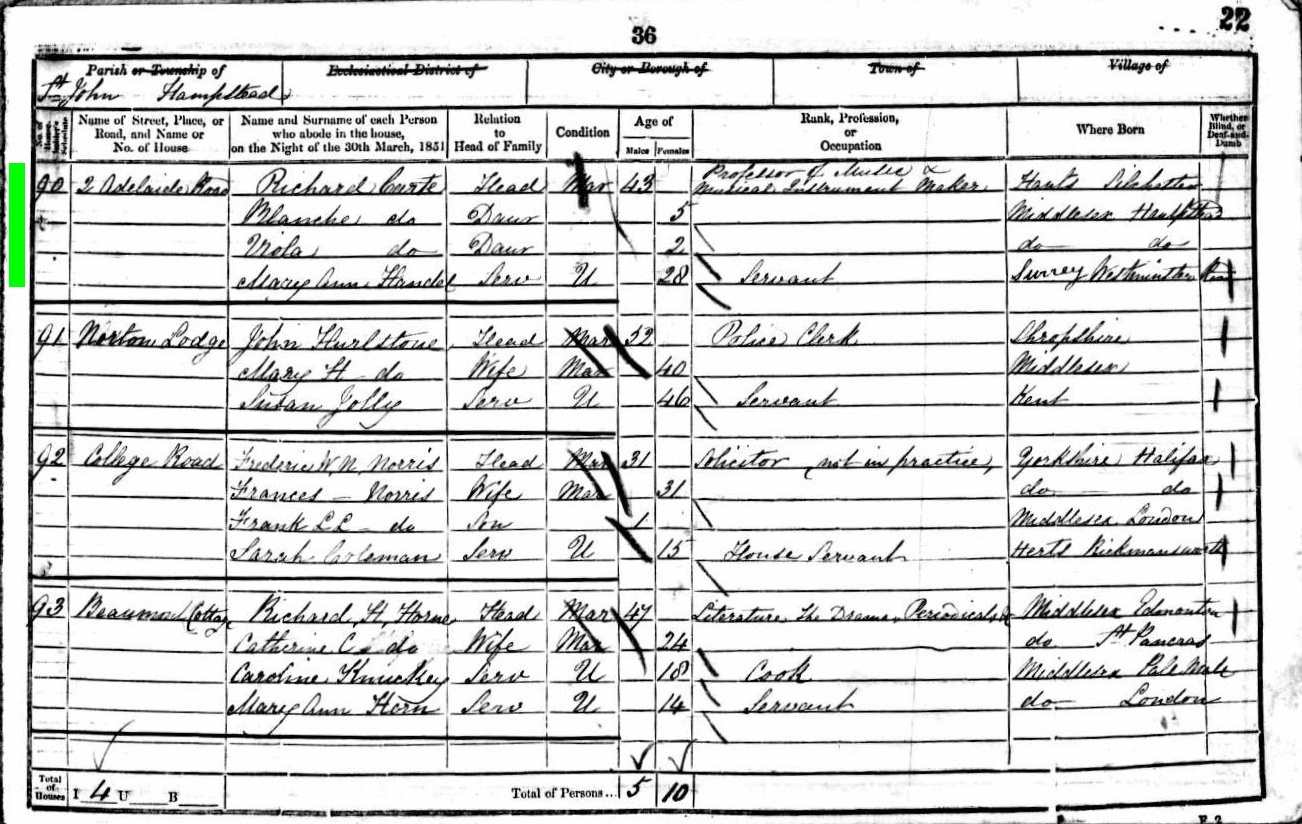 22
36
Parish or Township of Ecclesiastical District of City or Borough of Town of Village of
St John Hampstead
No. of Householder's Schedule Name of Street, Place, or Road, and Name or No. of House Name and Surname of each Person who abode in the house, on the Night of the 30th March, 1851 Relation to Head of Family Condition Age of Males Females Rank, Profession, or Occupation Where Born Whether Blind, or Deaf-and-Dumb
90 2 Adelaide Road Richard Carte Head Mar 43 Professor of Music & Musical Instrument Maker Hants Silchester
Blanche do Daur 5 Middlesex Hampstead
Viola do Daur 2 do do
Mary Ann Handel Serv U 28 Servant Surrey Westminster
91 Norton Lodge John Hurlstone Head Mar 52 Police Clerk Shropshire
Mary H do Wife Mar 40 Middlesex
Susan Jolly Serv U 46 Servant Kent
92 College Road Frederic W N Norris Head Mar 31 Solicitor (not in practice) Yorkshire Halifax
Frances Norris Wife Mar 31 do do
Frank L L do Son 1 Middlesex London
Sarah Coleman Serv U 15 House Servant Herts Rickmansworth
93 Beaumont Cottage Richard H. Horne Head Mar 47 Literature The Drama, Periodicals & Middlesex Edmonton
Catherine C do Wife Mar 24 do St Pancras
Caroline Knuckey Serv U 18 Cook Middlesex Pale Male
Mary Ann Horn Serv U 14 Servant do London
Total of Houses I 4 U B Total of Persons... 5 10
F 2